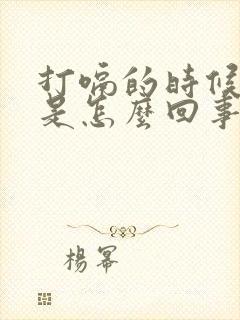 打嗝的時候
是怎麼回事
楊冪